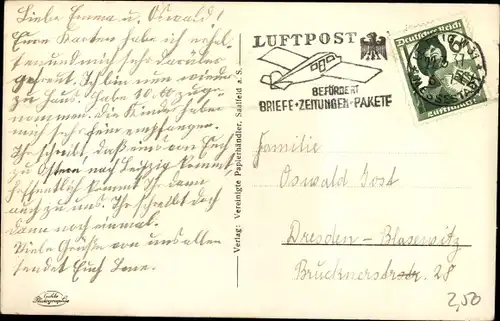 Liebe Emma u. Oswald!
Eure Karten habe ich erhal-
ten und mich sehr darüber
gefreut. Ich bin nun wieder
zu Haus. Habe 10.00 zuge-
nommen. Die Kinder haben
mich sehr fein empfangen.
Ihr schreibt daß Ihr evtl.
zu Ostern nach Leipzig kommt
hoffentlich kommt Ihr dann
auch zu uns. Ihr schreibt doch
dann noch einmal.
Viele Grüße von uns allen
sendet Euch Lene.
Echte Photographie
Verlag: Vereinigte Papierhändler, Saalfeld a. S.
LUFTPOST
BEFÖRDERT
BRIEFE • ZEITUNGEN • PAKETE
Deutsches Reich
Familie
Oswald Jost
Dresden - Blasewitz
Brucknerstr. 28
2,50